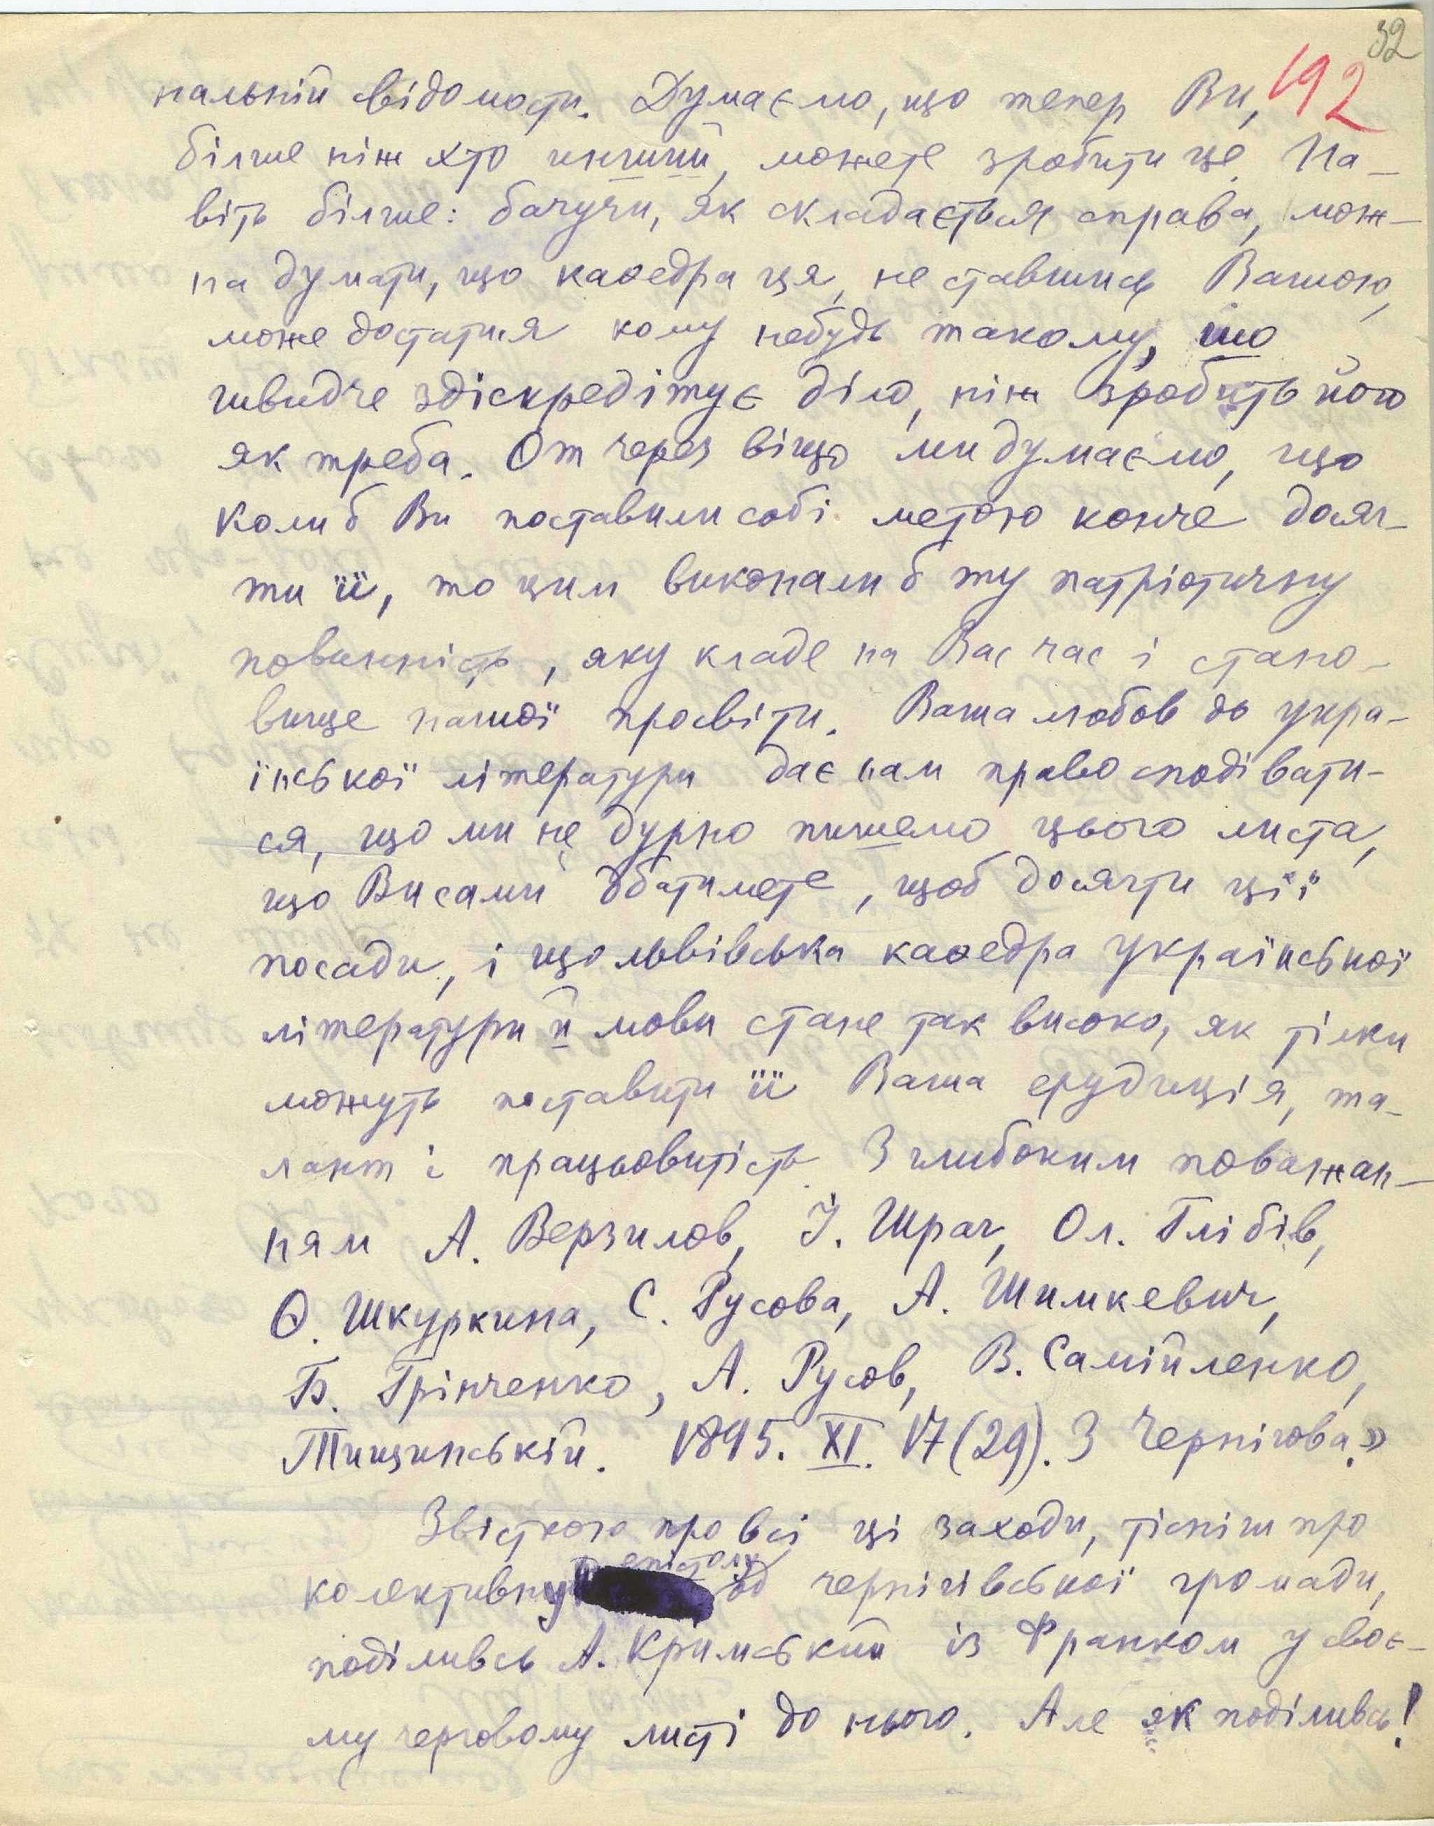 32
192
нальній свідомости. Думаємо, що тепер Ви,
білше ніж хто инший, можете зробити це. На-
віть білше: бачучи, як складається справа, мож-
на думати, що кафедра ця, не ставшись Вашою,
може достатися кому небудь такому, що
швидче здіскредітує діло, ніж зробить його
як треба. От через віщо ми думаємо, що
коли б Ви поставили собі метою конче досяг-
ти її, то цим виконали б ту патріотичну
повинність, яку кладе на Вас час і стано-
вище нашої просвіти. Ваша любов до укра-
їнської літератури дає нам право сподівати-
ся, що ми не дурно пишемо цього листа,
що Ви сами дбатимете, щоб досягти ції
посади, і що львівська кафедра української
літератури й мови стане так високо, як тілки
можуть поставити її Ваша ерудиція, та-
лант і працьовитість. З глибоким поважан-
ням А. Верзилов, І. Шраг, Ол. Глібів,
О. Шкуркина, С. Русова, А. Шимкевич,
Б. Грінченко, А. Русов, В. Самійленко,
Тищинській. 1895. XI. 17 (29). З Чернігова.»
Звісткою про всі ці заходи, тісніш про
колективну епістолу од чернігівської громади,
поділивсь А. Кримський із Франком у своє-
му черговому листі до нього. Але як поділивсь!